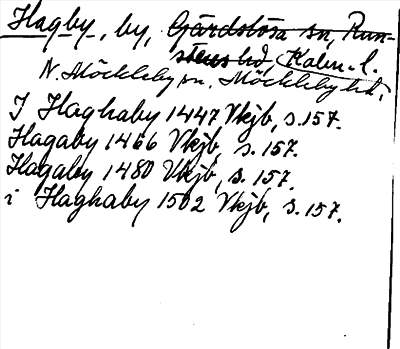 Hagby, by, Gärdslösa sn, Run-
stens hd, Kalm. l.
N. Möckleby sn. Möckleby hd.
I Haghaby 1447 Vkjb, s. 157.
Hagaby 1466 Vkjb, s. 157.
Hagaby 1480 Vkjb, s. 157.
i Haghaby 1502 Vkjb, s. 157.